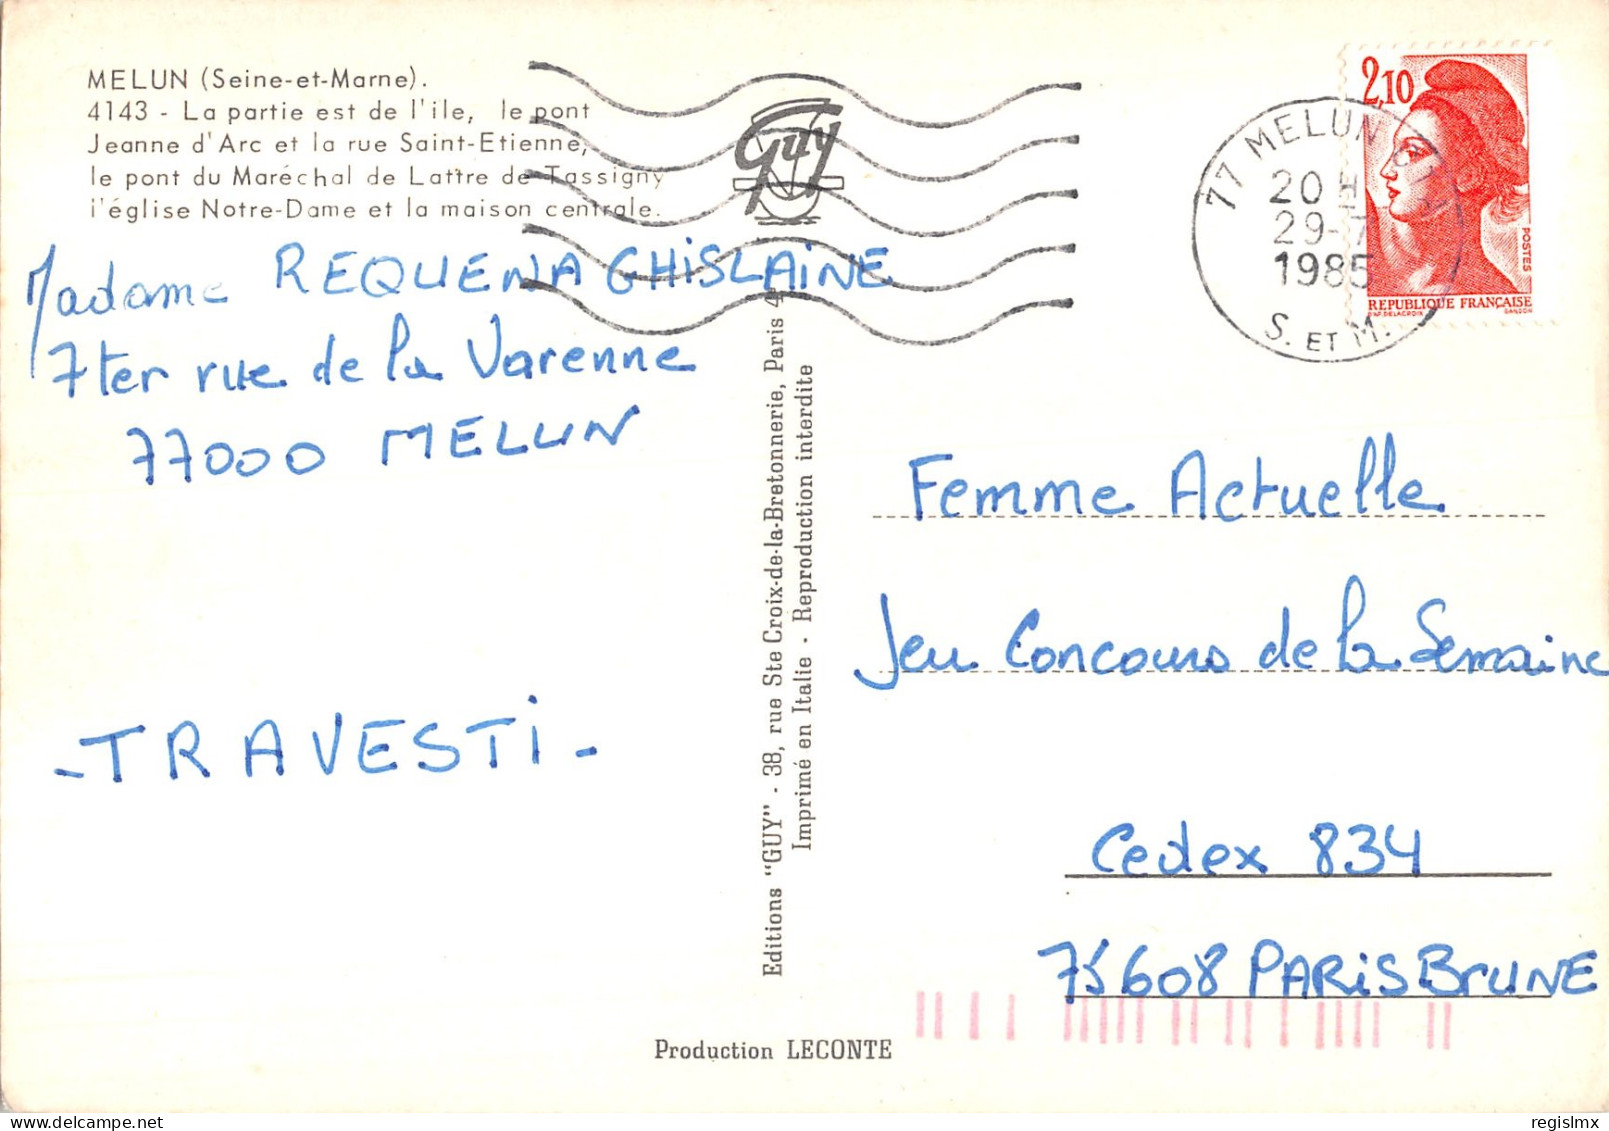 MELUN (Seine-et-Marne).
4143 - La partie est de l'ile, le pont
Jeanne d'Arc et la rue Saint-Etienne,
le pont du Maréchal de Lattre de Tassigny
l'église Notre-Dame et la maison centrale.
Guy
Madame REQUENA GHISLAINE
7ter rue de la Varenne
77000 MELUN
-TRAVESTI-
Editions "GUY" - 38, rue Ste Croix-de-la-Bretonnerie, Paris 4e
Imprimé en Italie - Reproduction interdite
Production LECONTE
77 MELUN
20 H
29-7
1985
S. ET M.
2,10
POSTES
REPUBLIQUE FRANÇAISE
D'AP. DELACROIX GANDON
Femme Actuelle
Jeu Concours de la Semaine
Cedex 834
75608 PARIS BRUNE
regislmx